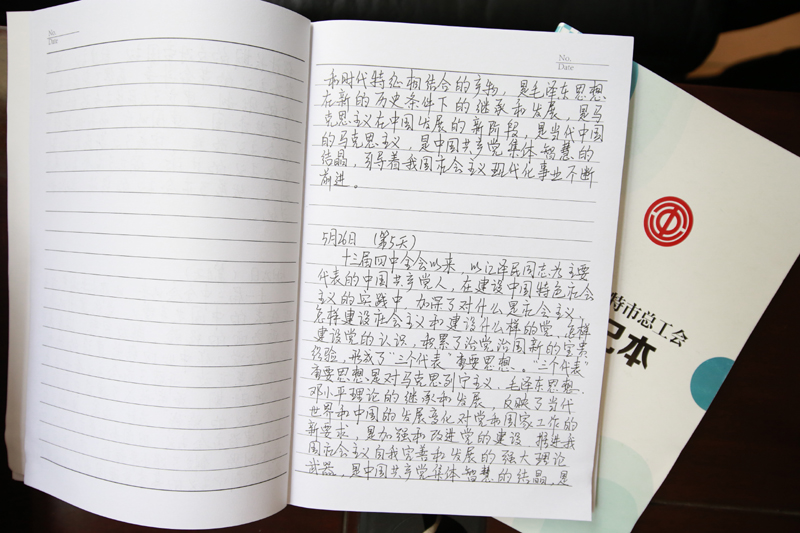 No.
Date
No.
Date
和时代特征相结合的产物，是毛泽东思想
在新的历史条件下的继承和发展，是马
克思主义在中国发展的新阶段，是当代中国
的马克思主义，是中国共产党集体智慧的
结晶，引导着我国社会主义现代化事业不断
前进。
5月26日（第5天）
十三届四中全会以来，以江泽民同志为主要
代表的中国共产党人，在建设中国特色社会
主义的实践中，加深了对什么是社会主义，
怎样建设社会主义和建设什么样的党，怎样
建设党的认识，积累了治党治国新的宝贵
经验，形成了“三个代表”重要思想。“三个代表”
重要思想是对马克思列宁主义，毛泽东思想，
邓小平理论的继承和发展，反映了当代
世界和中国的发展变化对党和国家工作的
新要求，是加强和改进党的建设，推进我
国社会主义自我完善和发展的强大理论
武器，是中国共产党集体智慧的结晶，是
特市总工会
记本